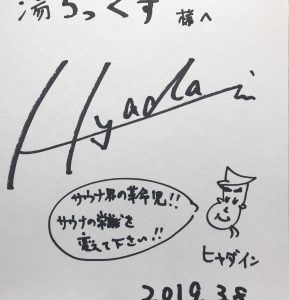 湯らっくす 様へ
Hyadain
サウナ界の革命児!!
サウナの常識を
変えて下さい!!
ヒャダイン
2019.3.8